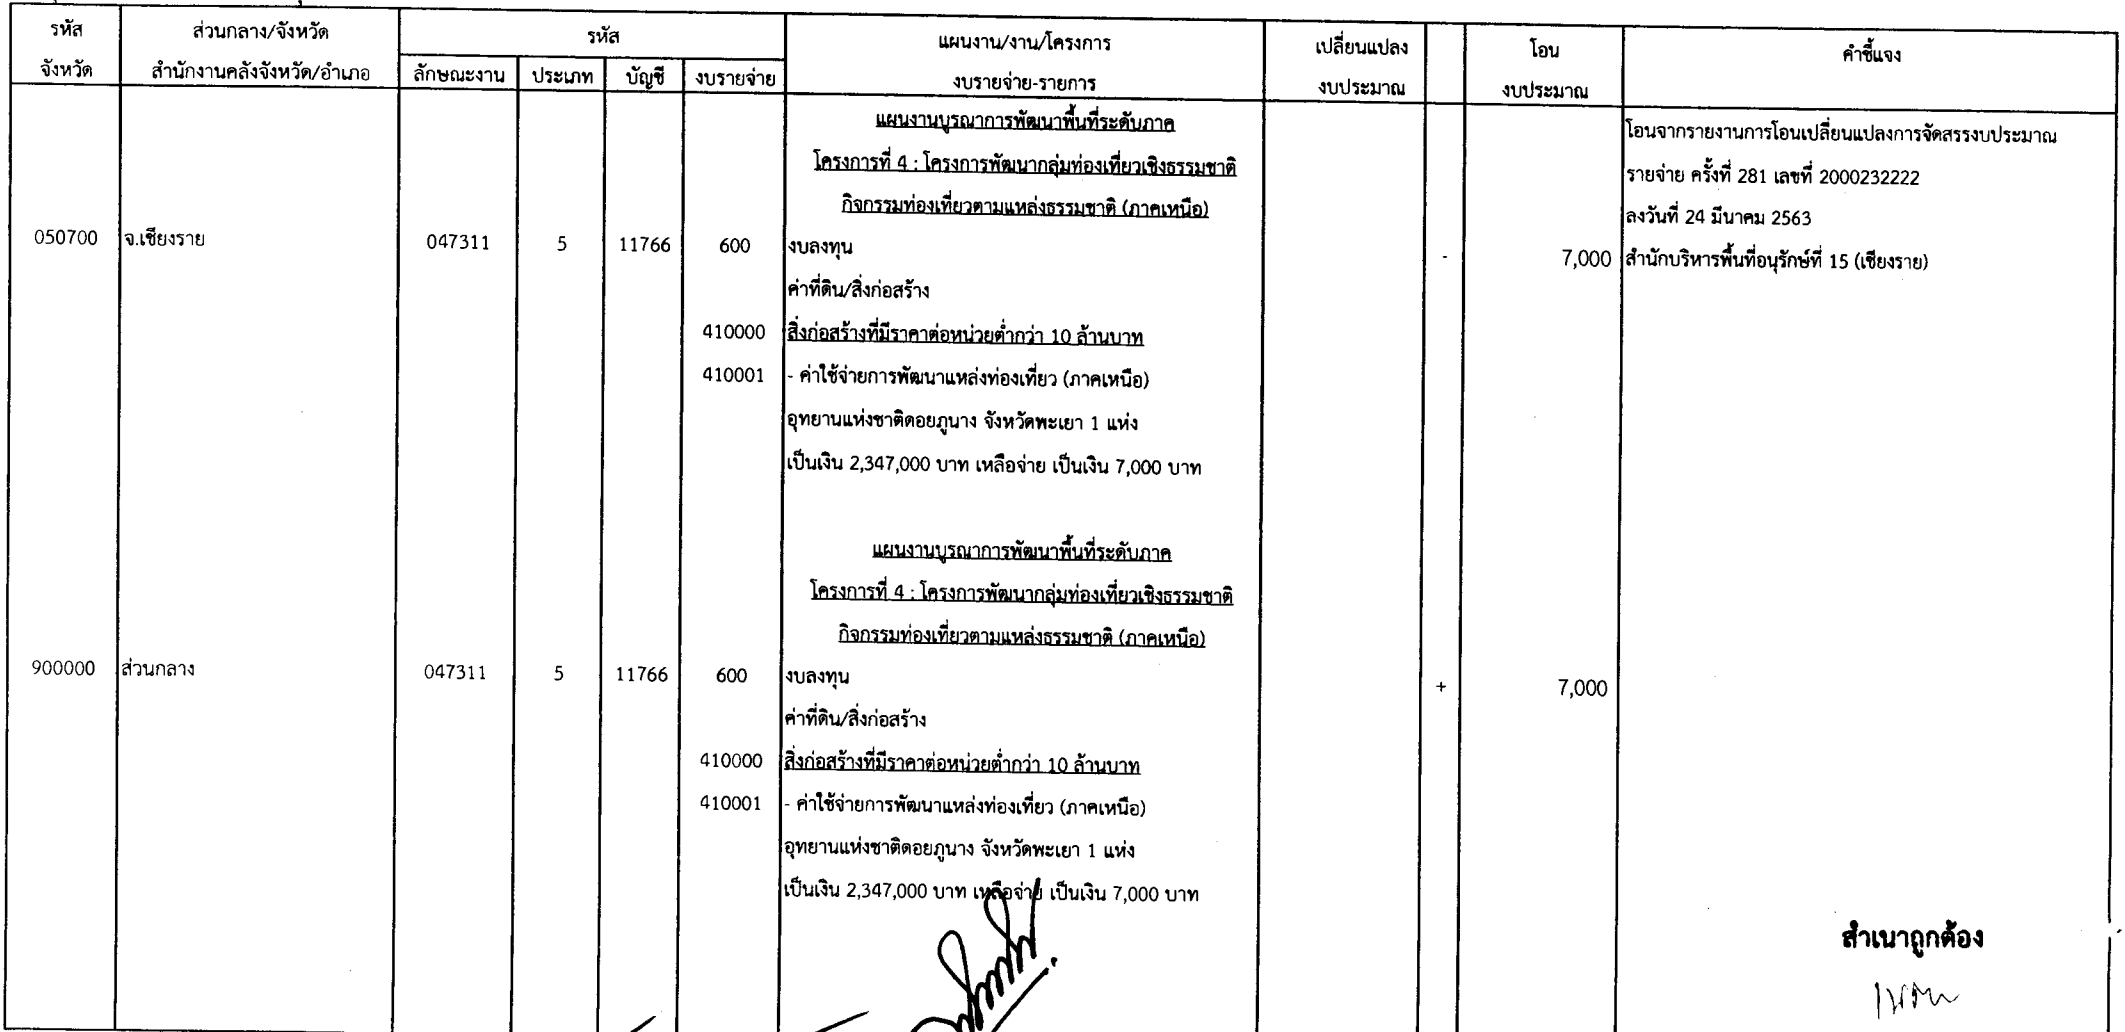 รหัส ส่วนกลาง/จังหวัด รหัส แผนงาน/งาน/โครงการ เปลี่ยนแปลง โอน คำชี้แจง
จังหวัด สำนักงานคลังจังหวัด/อำเภอ ลักษณะงาน ประเภท บัญชี งบรายจ่าย งบรายจ่าย-รายการ งบประมาณ งบประมาณ
แผนงานบูรณาการพัฒนาพื้นที่ระดับภาค โอนจากรายงานการโอนเปลี่ยนแปลงการจัดสรรงบประมาณ
โครงการที่ 4 : โครงการพัฒนากลุ่มท่องเที่ยวเชิงธรรมชาติ รายจ่าย ครั้งที่ 281 เลขที่ 2000232222
กิจกรรมท่องเที่ยวตามแหล่งธรรมชาติ (ภาคเหนือ) ลงวันที่ 24 มีนาคม 2563
050700 จ.เชียงราย 047311 5 11766 600 งบลงทุน - 7,000 สำนักบริหารพื้นที่อนุรักษ์ที่ 15 (เชียงราย)
ค่าที่ดิน/สิ่งก่อสร้าง
410000 สิ่งก่อสร้างที่มีราคาต่อหน่วยต่ำกว่า 10 ล้านบาท
410001 - ค่าใช้จ่ายการพัฒนาแหล่งท่องเที่ยว (ภาคเหนือ)
อุทยานแห่งชาติดอยภูนาง จังหวัดพะเยา 1 แห่ง
เป็นเงิน 2,347,000 บาท เหลือจ่าย เป็นเงิน 7,000 บาท
แผนงานบูรณาการพัฒนาพื้นที่ระดับภาค
โครงการที่ 4 : โครงการพัฒนากลุ่มท่องเที่ยวเชิงธรรมชาติ
กิจกรรมท่องเที่ยวตามแหล่งธรรมชาติ (ภาคเหนือ)
900000 ส่วนกลาง 047311 5 11766 600 งบลงทุน + 7,000
ค่าที่ดิน/สิ่งก่อสร้าง
410000 สิ่งก่อสร้างที่มีราคาต่อหน่วยต่ำกว่า 10 ล้านบาท
410001 - ค่าใช้จ่ายการพัฒนาแหล่งท่องเที่ยว (ภาคเหนือ)
อุทยานแห่งชาติดอยภูนาง จังหวัดพะเยา 1 แห่ง
เป็นเงิน 2,347,000 บาท เหลือจ่าย เป็นเงิน 7,000 บาท
สำเนาถูกต้อง